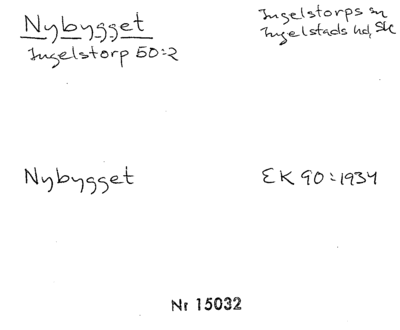 Nybygget
Ingelstorp 50:2
Ingelstorps sn
Ingelstads hd, Sk
Nybygget
EK 90:1934
Nr 15032